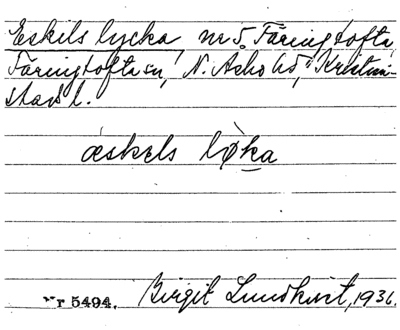 Eskils lycka nr 5. Färingtofta
Färingtofta sn, N. Åsbo hd, Kristian-
stads l.
æskels lø̀ka
Nr 5494. Birgit Lundkvist, 1936.